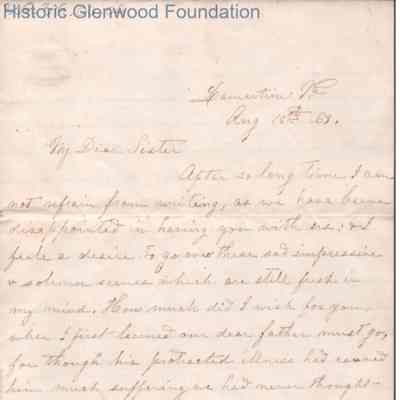 Historic Glenwood Foundation
Lamartine Pa
Aug 18th 69.
My Dear Sister
After so long time I can
not refrain from writing, as we have been
disappointed in having you with us; & I
feele a desire to go over those sad impressive
& solemn scenes which are still fresh in
my mind. How much did I wish for you,
when I first learned our dear father must go,
for though his protracted illness had caused
him much suffering we had never thought-